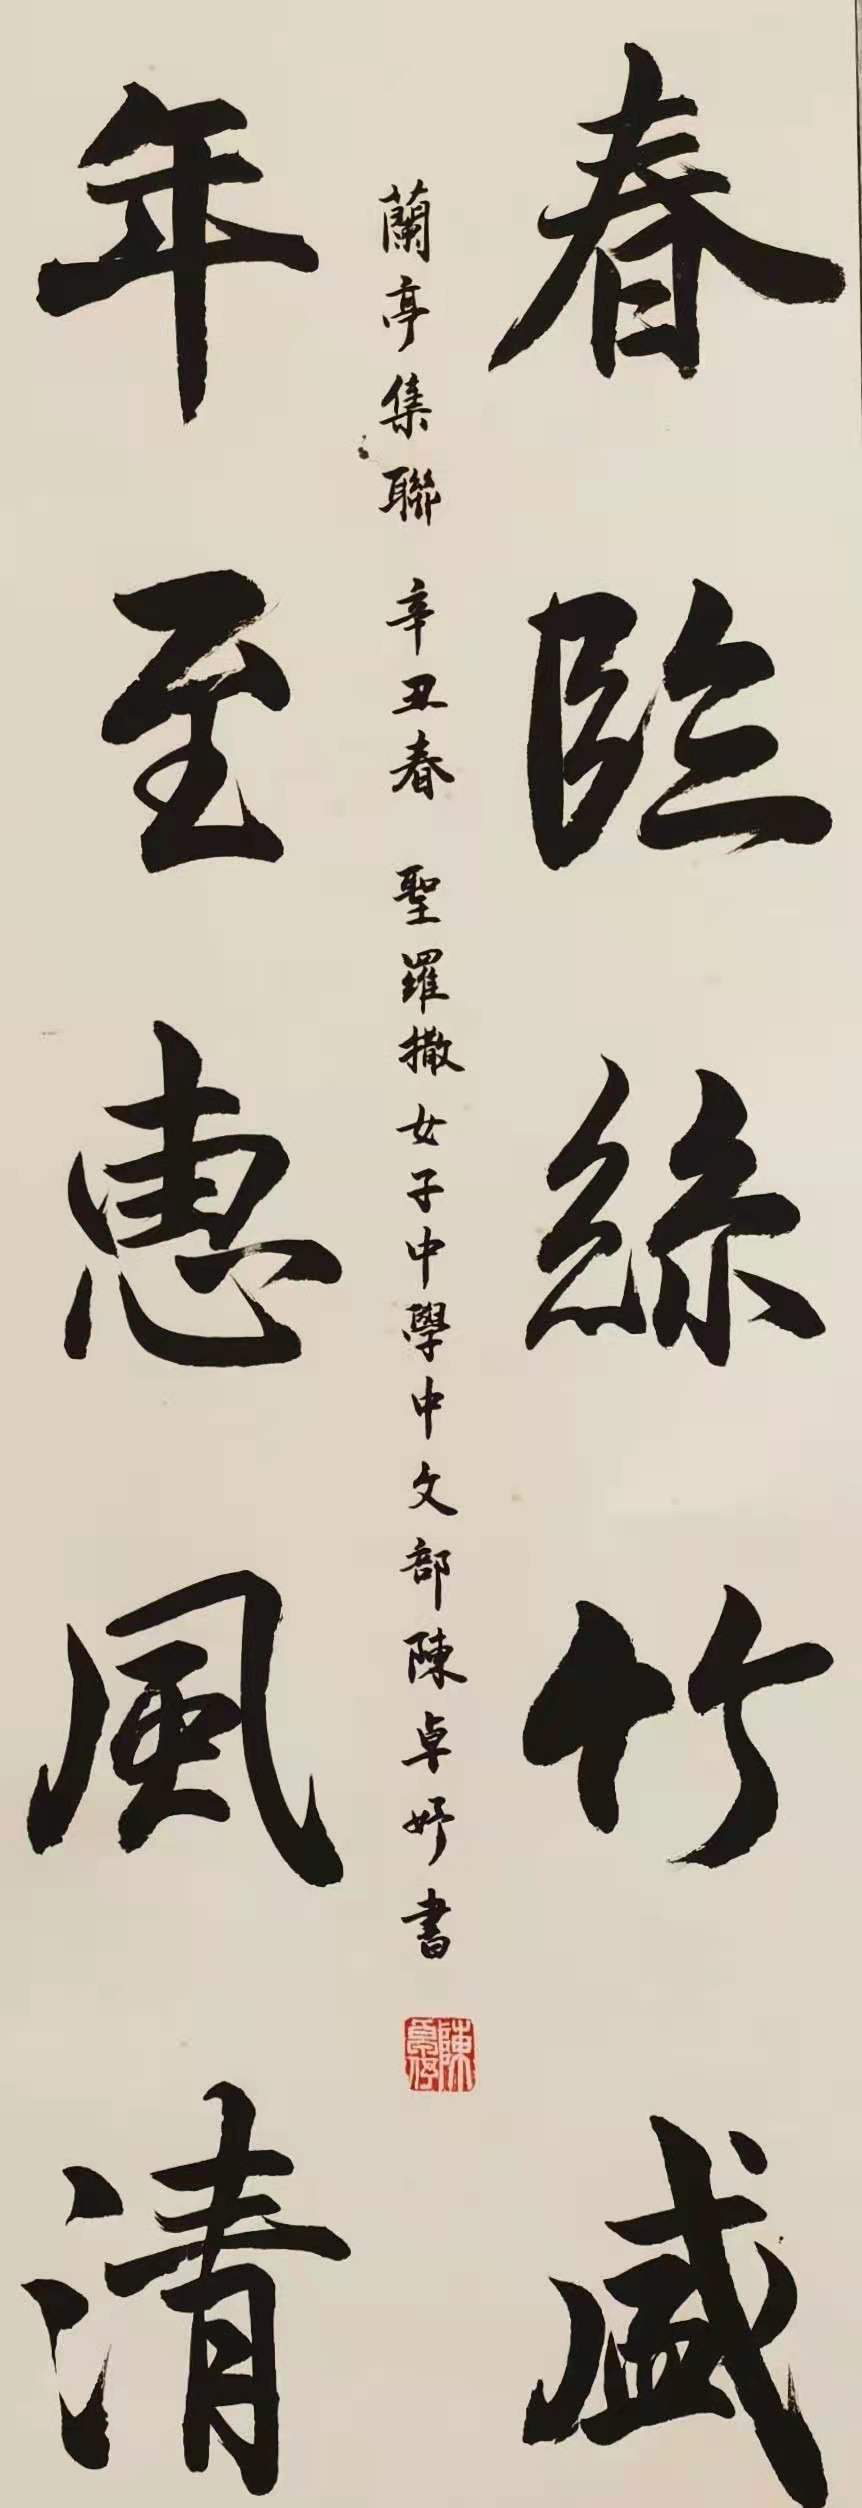 春臨絲竹盛
蘭亭集聯 辛丑春 聖羅撒女子中學中文部陳卓妤書
年至惠風清